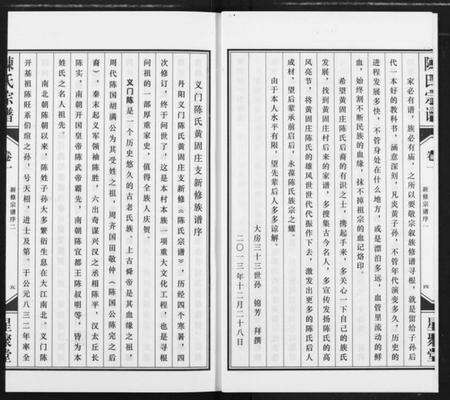 家必有谱，族必有庙，之所以要敬宗叙族修谱寻根，就是留给子孙后
代一本好的教科书，涵意深刻，凡炎黄子孙，不管年代演变多久，历史
进程发展多快，不管身处在什么地方，或是漂泊多远，血管里流动的鲜
血，始终割不断民族的血缘，抹不掉祖宗的血记烙印。
希望黄固庄陈氏后裔的有识之士，携起手来，多关心一下自己的族氏
发展，找到黄固庄村后来的家谱，多搜集古今名人，多宣传发扬陈氏的高
风亮节，将黄固庄陈氏的雄风世世代代振作下去，激发出更多的陈氏后人
成材，望后辈承前启后，永葆陈氏族宗之耀。
由于本人水平有限，望先辈后人多多谅解。
大房三十三世孙　锦芳　拜撰
二〇一三年十二月二十八日
新修宗谱序
四
星聚堂
陳氏宗譜
卷一
新修宗谱序二
五
星聚堂
义门陈氏黄固庄支新修族谱序
丹阳义门陈氏黄固庄支新修《陈氏宗谱》，历经四个寒暑，四
次修订，终于问世了，这是本村本族一项重大文化工程，也是寻根
问祖的一部厚重家史，值得全族人庆贺。
义门陈是一个历史悠久的古老民族，上古舜帝是其血缘之祖，
周代陈国胡满公为其受姓之祖，周齐国田敬仲（陈国公陈完之后
裔），秦末起义军领袖陈胜，六出奇谋兴汉之丞相陈平，汉太丘长
陈实，南朝开国皇帝陈武帝霸先，南朝陈宜都王陈叔明等，皆为本
姓氏之名人祖先。
南北朝陈朝以来，陈姓子孙大多繁俗生息在大江南北。义门陈
开基祖陈旺系伯宣之孙，号天相，进士及第，于公元八三二年率全